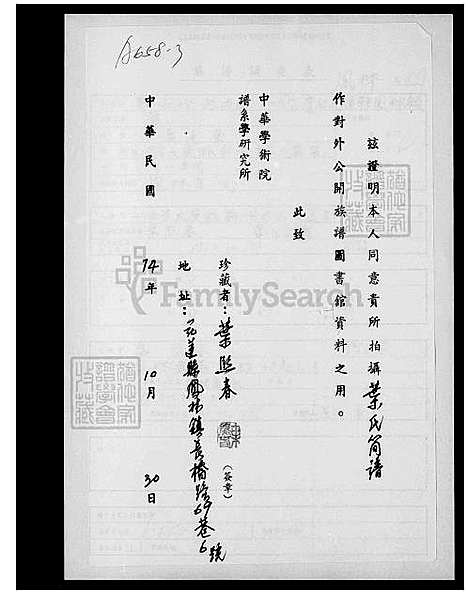 A658-3
茲證明本人同意貴所拍攝葉氏簡譜
作對外公開族譜圖書館資料之用。
此致
中華學術院
譜系學研究所
珍藏者：葉熙春（簽章）
地址：花蓮縣鳳林鎮長橋路69巷6號
中華民國74年10月30日
FamilySearch